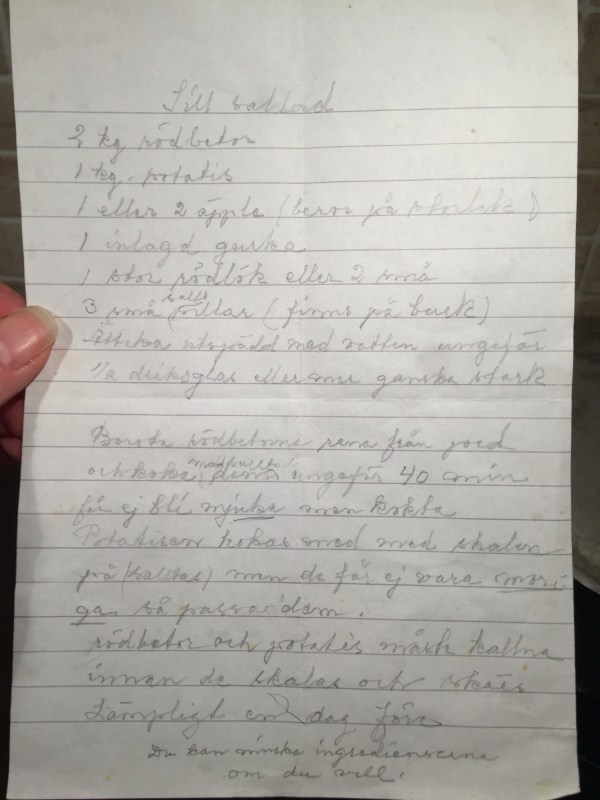 Sill sallad
2 kg rödbetor
1 kg. potatis
1 eller 2 äpple (beror på storlek)
1 inlagd gurka
1 stor rödlök eller 2 små
3 små salta sillar (finns på burk)
Ättika utspädd med vatten ungefär
1/2 dricksglas eller mer ganska stark
Borsta rödbetorna rena från jord
och koka dem med salt ungefär 40 min
får ej bli mjuka men kokta
Potatisen kokas med med skalen
på (saltas) men de får ej vara mosi
ga så passa dem.
rödbetor och potatis måste kallna
innan de skalas och
Lämpligt en dag före
Du kan minska ingredienserna
om du vill.